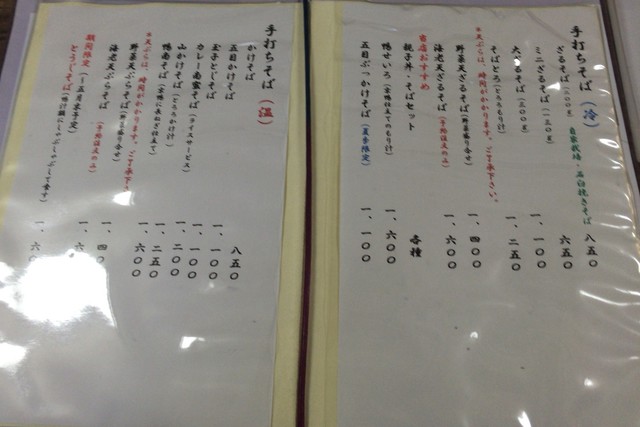 手打ちそば（冷）
自家栽培・石臼挽きそば
ざるそば（二〇〇g） 八五〇
ミニざるそば（一三〇g） 六五〇
大ざるそば（三〇〇g） 一、一〇〇
そばとろ（とろろもり汁） 一、二五〇
※天ぷらは、時間がかかります。ご了承下さい。
野菜天ざるそば（野菜盛り合せ） 一、四〇〇
海老天ざるそば（予約注文のみ） 一、六〇〇
当店おすすめ
親子丼・そばセット 各種
鴨せいろ（合鴨仕立てのもり汁） 一、六〇〇
五目ぶっかけそば（夏季限定） 一、一〇〇
手打ちそば（温）
かけそば 八五〇
五目かけそば 一、一〇〇
玉子とじそば 一、一〇〇
カレー南蛮そば（ライスサービス） 一、二〇〇
山かけそば（とろろかけ汁） 一、二五〇
鴨南そば（合鴨に長ねぎ仕立て） 一、六〇〇
※天ぷらは、時間がかかります。ご了承下さい。
野菜天ぷらそば（野菜盛り合せ） 一、四〇
海老天ぷらそば（予約注文のみ） 一、六〇
期間限定（〜五月末予定）
とうじそば（鴨汁鍋にしゃぶしゃぶして食す） 一、六〇